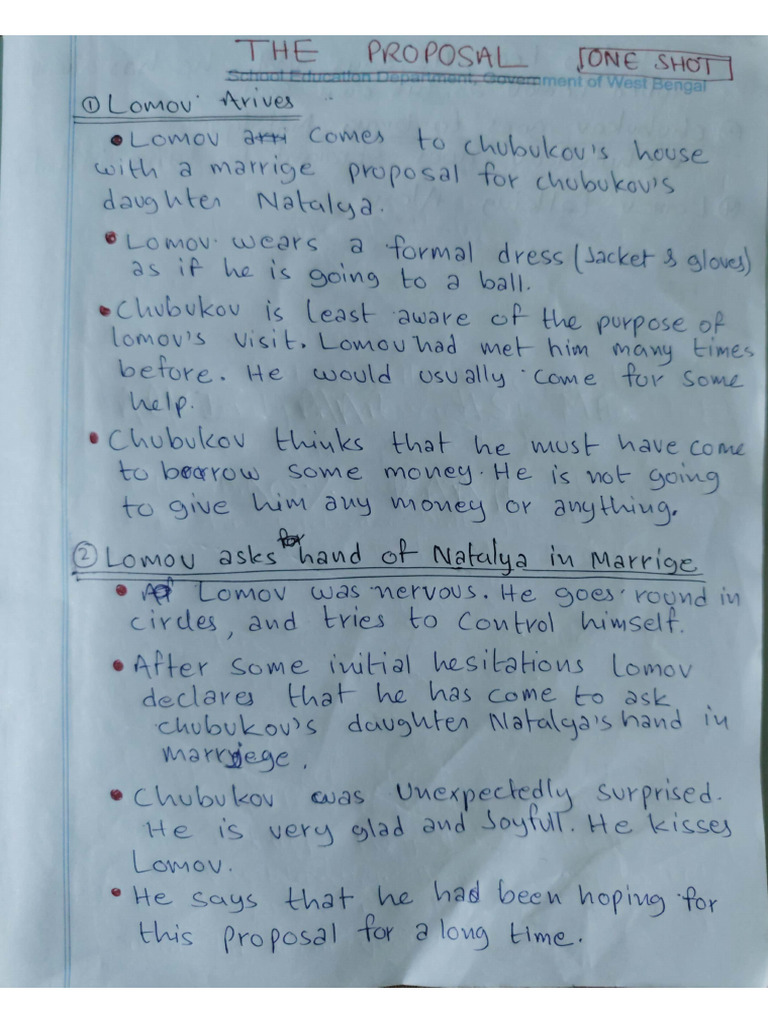 THE PROPOSAL ONE SHOT
School Education Department, Government of West Bengal
① Lomov Arives
• Lomov arri comes to chubukov's house
with a marrige proposal for chubukov's
daughter Natalya.
• Lomov wears a formal dress (Jacket & gloves)
as if he is going to a ball.
• Chubukov is least aware of the purpose of
lomov's visit. Lomov had met him many times
before. He would usually come for some
help.
• Chubukov thinks that he must have come
to borrow some money. He is not going
to give him any money or anything.
② Lomov asks for hand of Natalya in Marrige
• Lomov was nervous. He goes round in
circles, and tries to control himself.
• After some initial hesitations lomov
declares that he has come to ask
chubukov's daughter Natalya's hand in
marrjege.
• Chubukov was Unexpectedly surprised.
He is very glad and Joyfull. He kisses
Lomov.
• He says that he had been hoping for
this proposal for a long time.